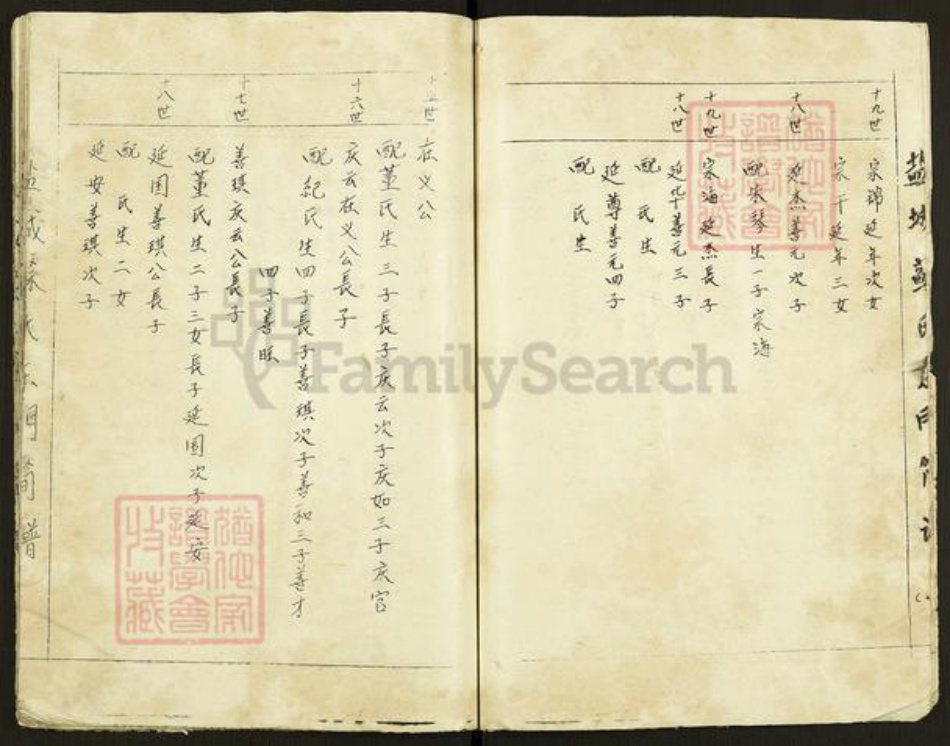 十九世
宗 延年次女
宗 延年三女
十八世
延杰善元次子
配朱琴生一子宗海
十九世
宗海延杰長子
十八世
延华善元三子
配 氏生
延尊善元四子
配 氏生
在义公
配董氏生三子長子庆云次子庆如三子庆官
十六世
庆云在义公長子
配紀氏生四子長子善琪次子善和三子善才
四子善旺
十七世
善琪庆云公長子
配董氏生二子三女長子延国次子延安
十八世
延国善琪公長子
配 氏生二女
延安善琪次子
猶他家譜學會收藏
猶他家譜學會收藏
FamilySearch